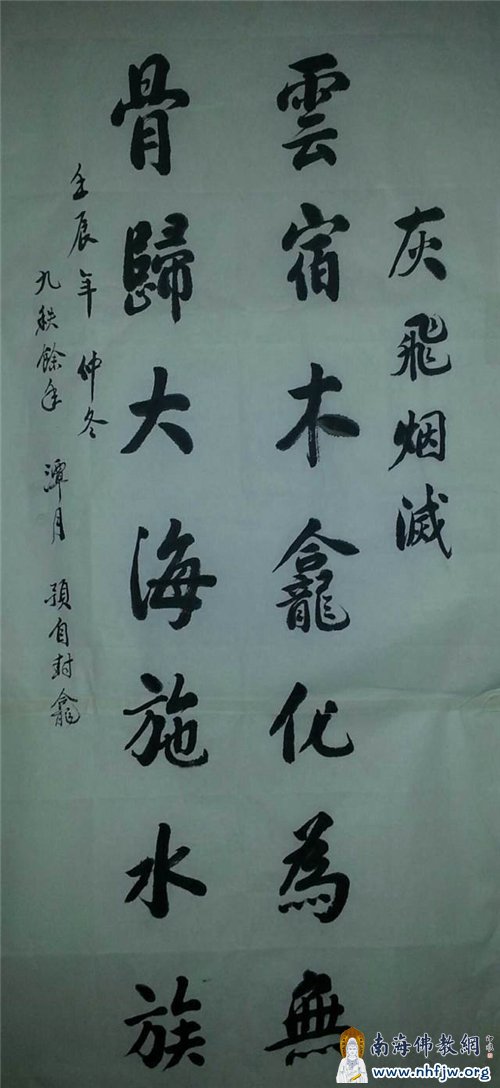 灰飛烟滅
雲宿木龕化為無
骨歸大海施水族
壬辰年仲冬
九秩餘年 潭月 預自封龕
南海佛教網
www.nhfjw.org